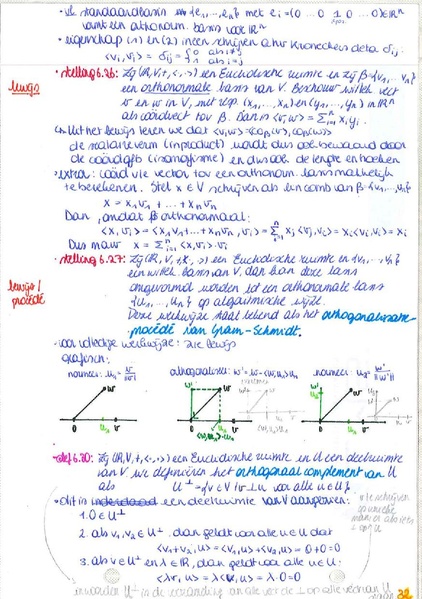 · vb. standaardbasis {e₁,...,eₙ} met eᵢ = (0 ... 0 1 0 ... 0) ∈ ℝⁿ
vormt een orthonorm. basis voor ℝⁿ
· eigenschap (1) en (2) in een schrijven ahv Kroneckers delta δᵢⱼ:
<vᵢ, vⱼ> = δᵢⱼ = {0 als i≠j
{1 als i=j
bewijs
· stelling 6.26: Zij (ℝ,V,+,<·,·>) een Euclidische ruimte en zij β={v₁,...,vₙ}
een orthonormale basis van V. Beschouw willek. vect
v en w in V, met resp. (x₁,...,xₙ) en (y₁,...,yₙ) in ℝⁿ
als coördvect tov β. Dan is <v,w> = Σⁿᵢ₌₁ xᵢyᵢ
Uit het bewijs leren we dat <v,w> = <coβ(v), coβ(w)>
de scalaire verm (inproduct) wordt dus ook bewaard door
de coördafb (isomorfisme) en dus ook de lengte en hoeken
· extra: coörd v/e vector tov een orthonorm. basis makkelijk
te berekenen. Stel x ∈ V schrijven als lin comb van β={v₁,...,vₙ}
x = x₁v₁ + ... + xₙvₙ
Dan, omdat β orthonormaal:
<x, vᵢ> = <x₁v₁ + ... + xₙvₙ, vᵢ> = Σⁿⱼ₌₁ xⱼ <vⱼ, vᵢ> = xᵢ<vᵢ, vᵢ> = xᵢ
Dus nauw x = Σⁿᵢ₌₁ <x, vᵢ> · vᵢ
bewijs/
procédé
· stelling 6.27: Zij (ℝ,V,+,<·,·>) een Euclidische ruimte en {v₁,...,vₙ}
een willek. basis van V, dan kan deze basis
omgevormd worden tot een orthonormale basis
{u₁,...,uₙ} op algoritmische wijze.
Deze werkwijze staat bekend als het orthogonalisatie-
procédé van Gram-Schmidt.
· voor volledige werkwijze: zie bewijs
grafisch:
normeer: u₁ = v/‖v‖
orthogonaliseer: w' = w - <w,u₁>u₁
normeer: u₂ = w'/‖w'‖
w
u₁ v
w' w
u₁ v
<w,u₁>·u₁
w'
u₂
u₁ v
· def 6.30: Zij (ℝ,V,+,<·,·>) een Euclidische ruimte en U een deelruimte
van V. we definiëren het orthogonaal complement van U
als U⊥ = {v ∈ V | v ⊥ u voor alle u ∈ U}
· dit is een deelruimte van V aangezien:
1. 0 ∈ U⊥
2. als v₁, v₂ ∈ U⊥ dan geldt voor alle u ∈ U dat
<v₁+v₂, u> = <v₁, u> + <v₂, u> = 0+0 = 0
3. als v ∈ U⊥ en λ ∈ ℝ, dan geldt voor alle u ∈ U:
<λv, u> = λ<v, u> = λ·0 = 0
in woorden U⊥ is de verzameling van alle vect die ⊥ op alle vect van U
32